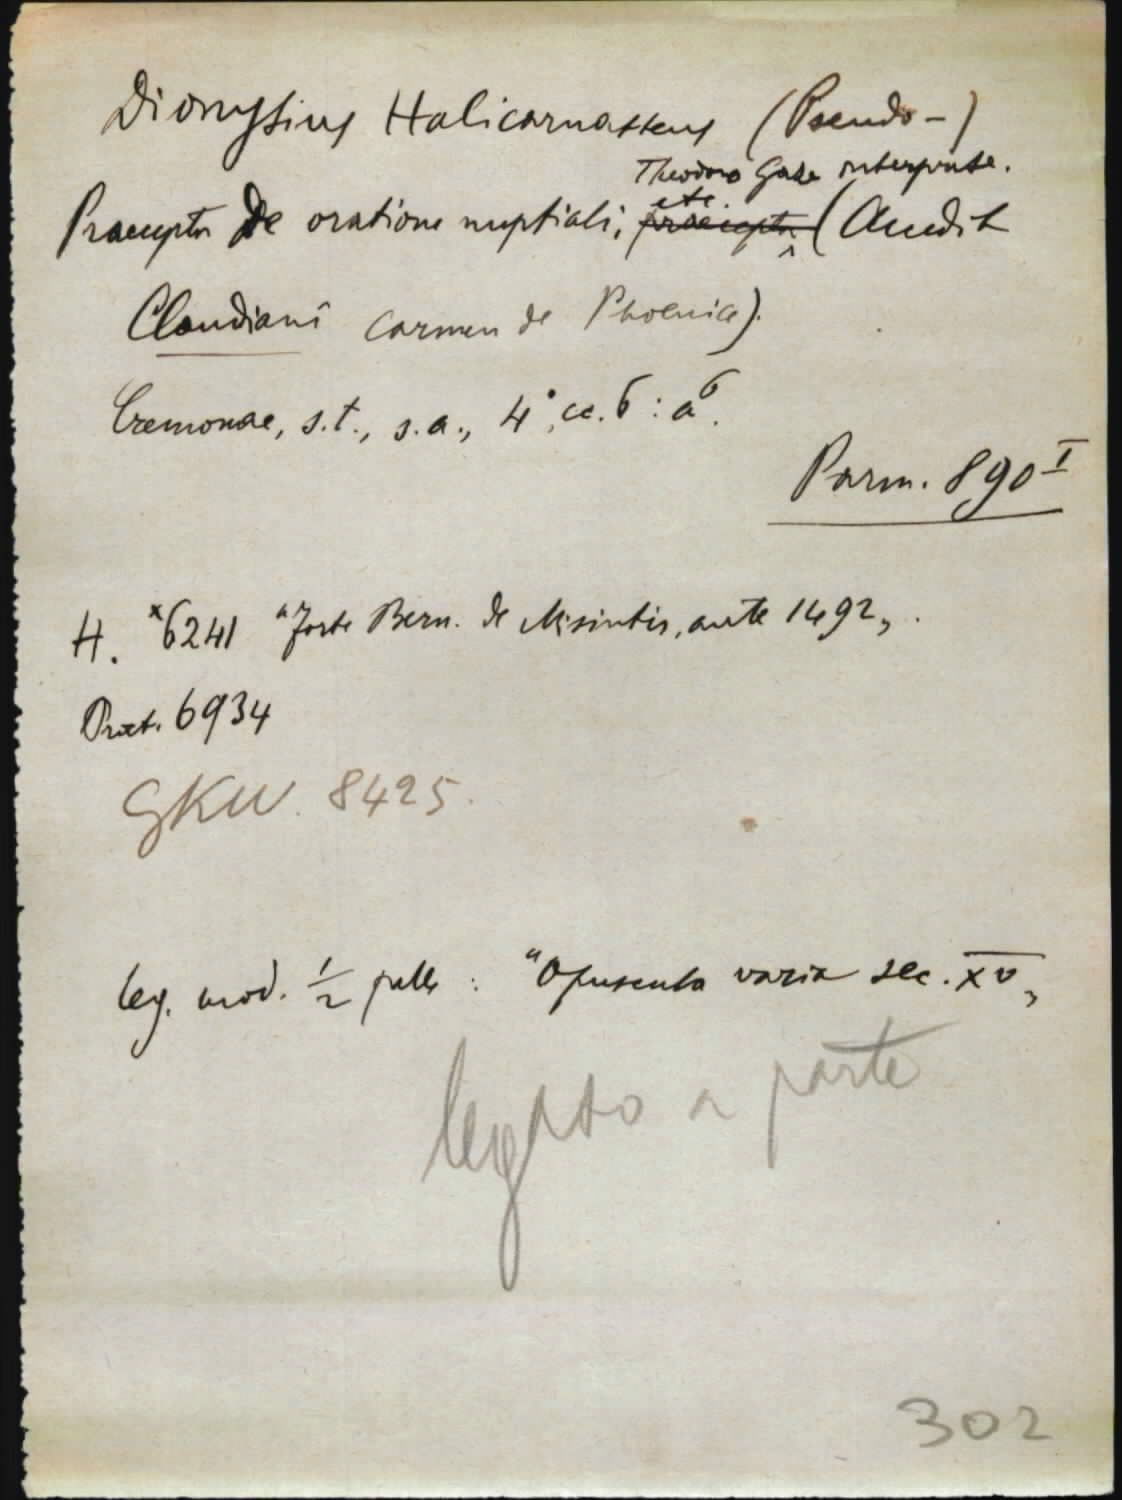 Dionysius Halicarnasseus (Pseudo-)
Theodoro Gaze interprete.
etc.
Praecepta De oratione nuptiali, praecepta (Accedit
Claudiani carmen de Phoenice).
Cremonae, s.t., s.a., 4°, cc. 6 : a⁶.
Parm. 890 I
H. *6241 "Forte Bern. de Misintis, ante 1492".
Proct. 6934
GKW. 8425.
leg. mod. 1/2 pelle : "Opuscula varia sec. XV"
legato a parte
302